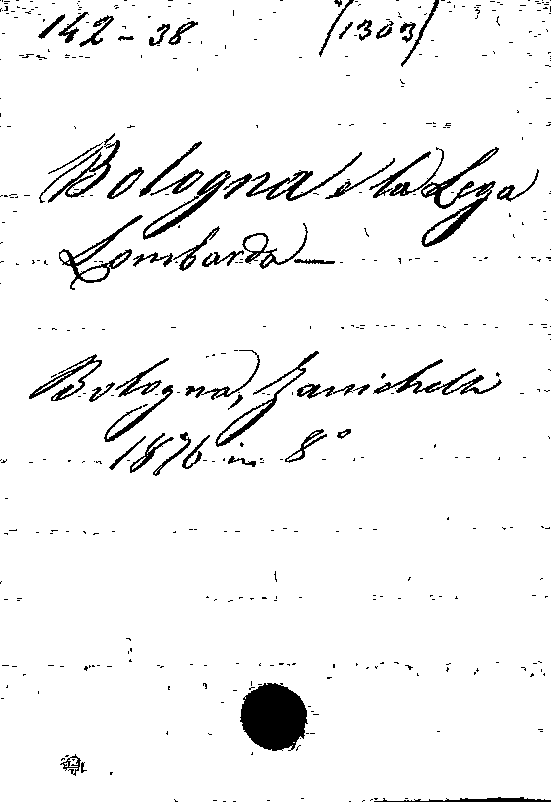 142-38 (1303)
Bologna e la Lega
Lombarda —
Bologna, Zanichelli
1876 in 8°